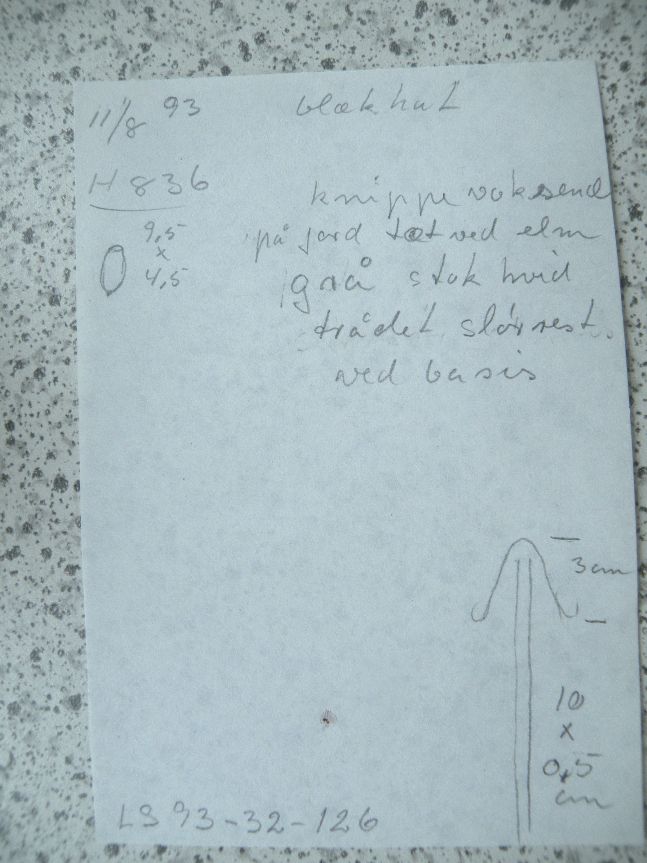 11/8 93 blækhat
H 836
knippe voksend
på jord tæt ved elm
9,5
x
4,5
grå stok hvid
trådet slørrest.
ved basis
3 cm
10
x
0,5
cm
LS 93-32-126